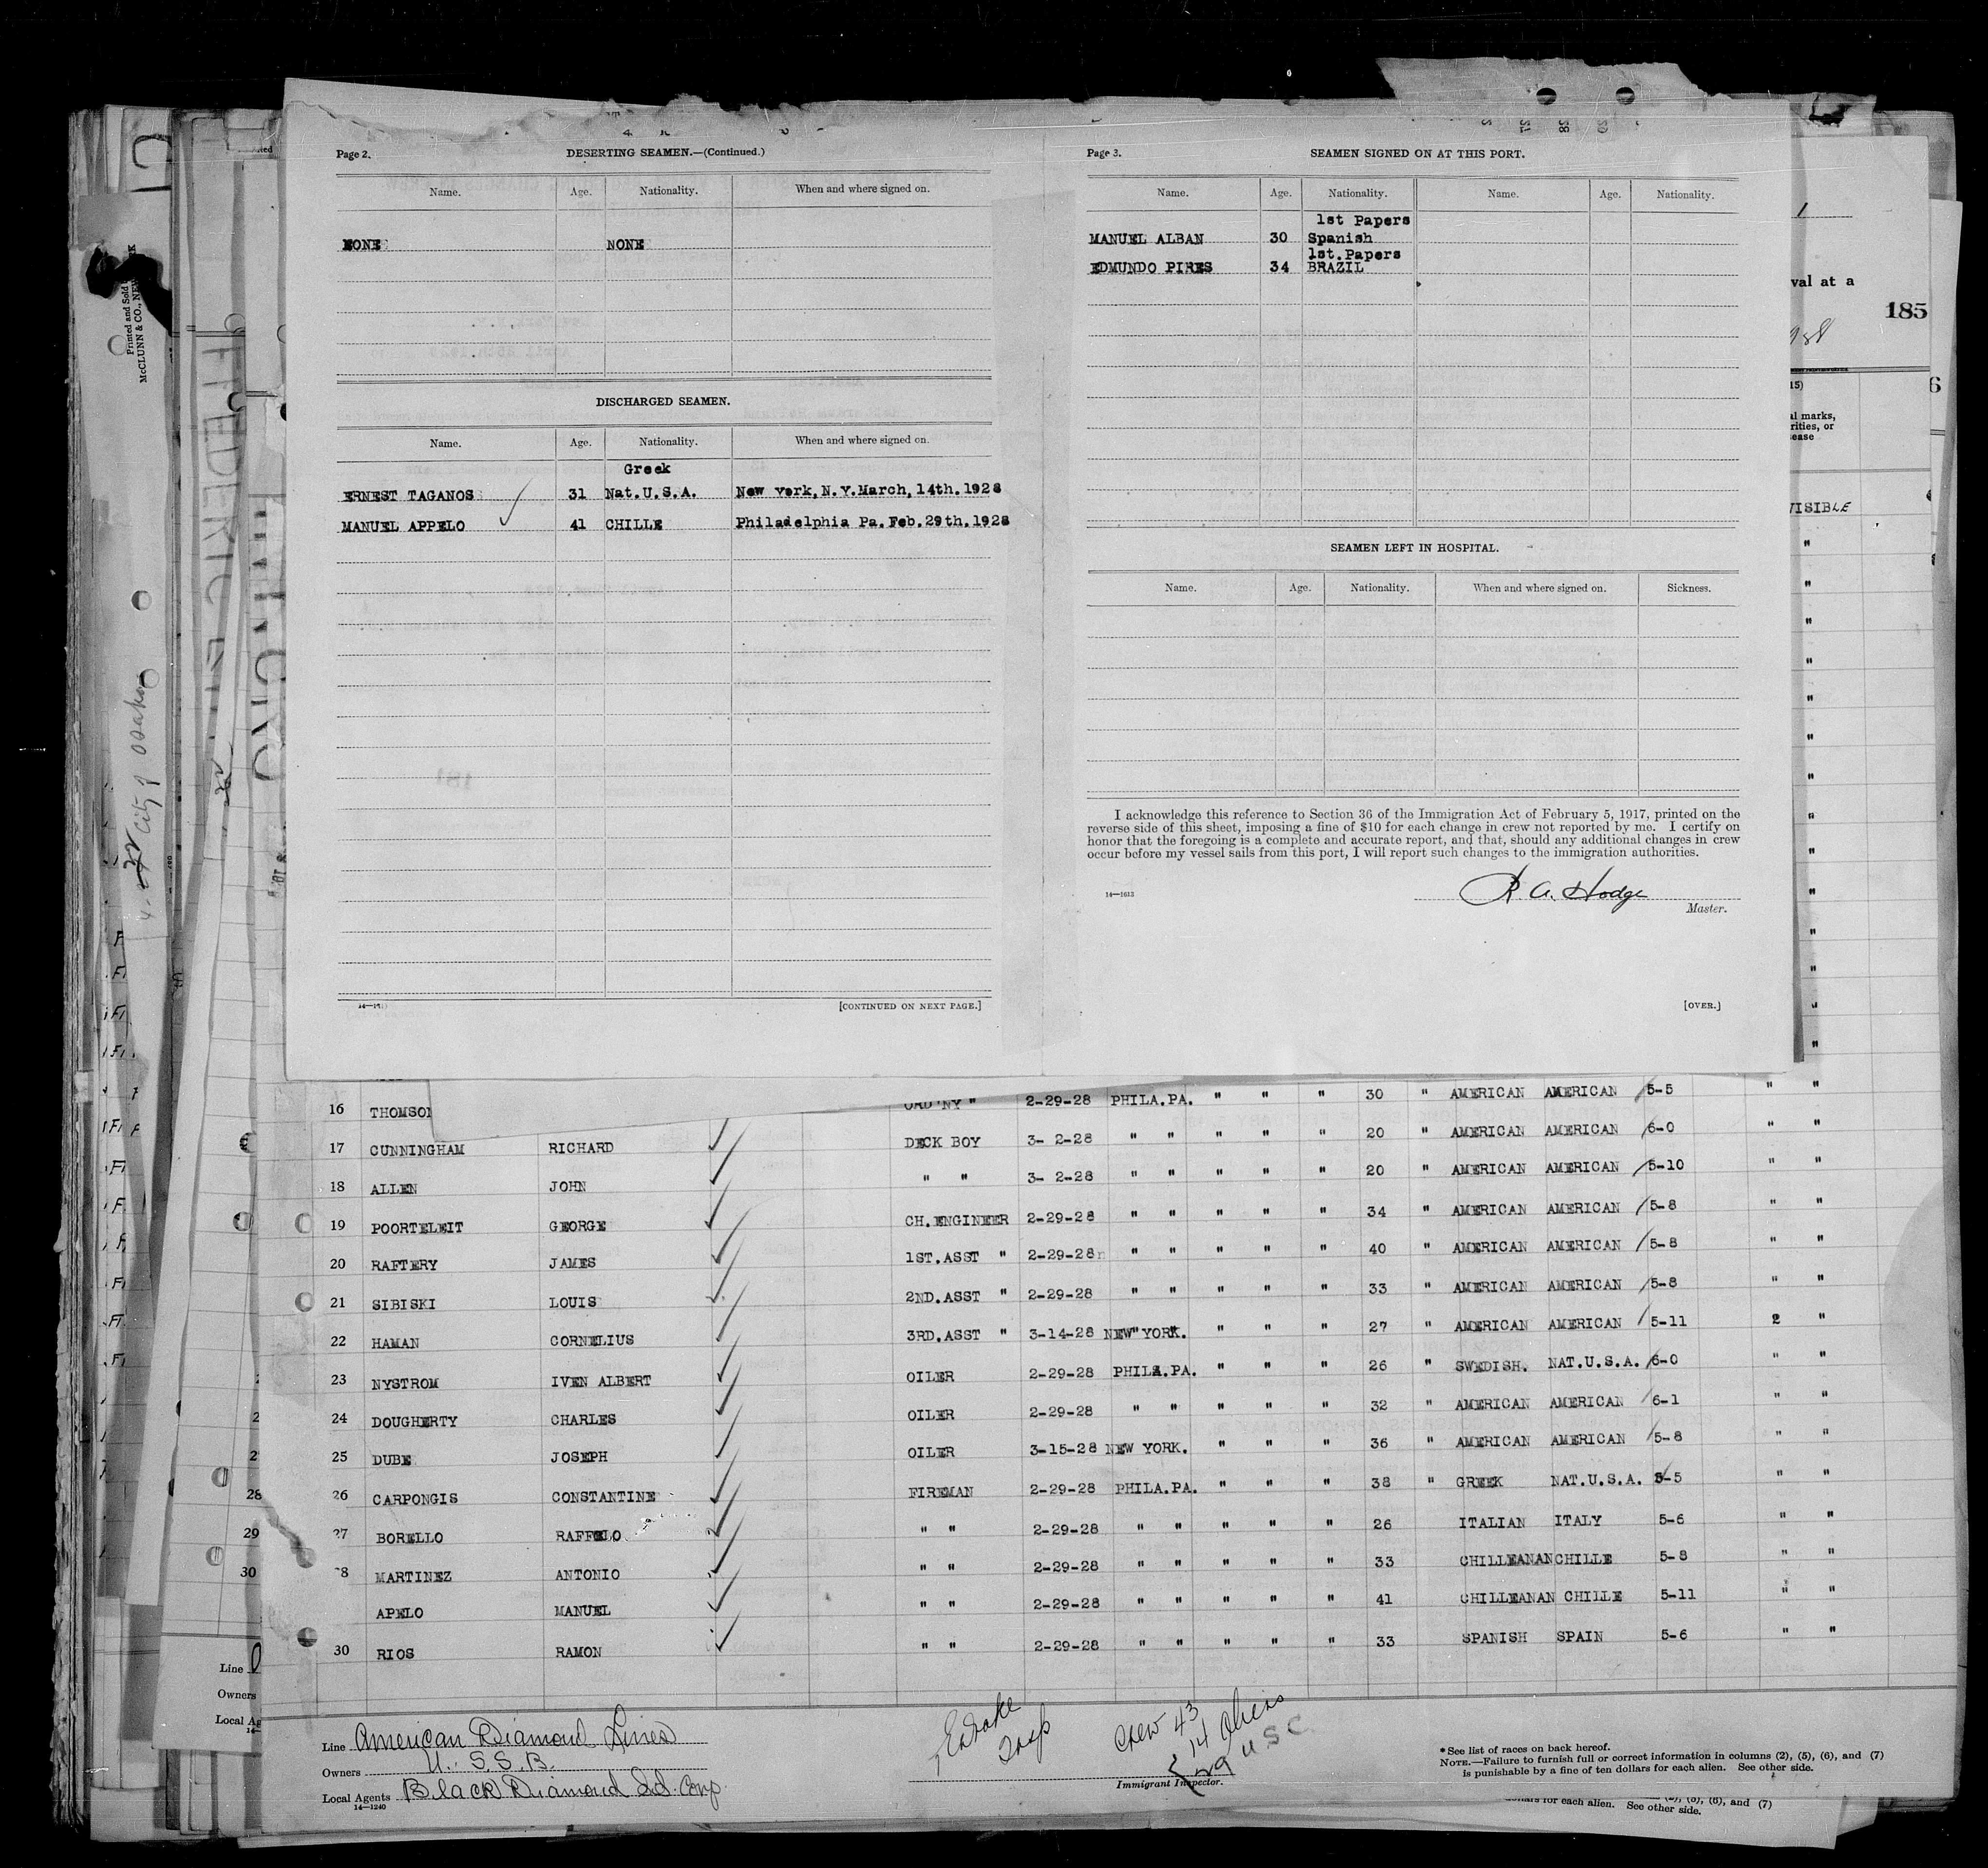 Page 2.
DESERTING SEAMEN.—(Continued.)
Name. Age. Nationality. When and where signed on.
NONE NONE
DISCHARGED SEAMEN.
Name. Age. Nationality. When and where signed on.
Greek
ERNEST TAGANOS 31 Nat.U.S.A. New york,N.Y.March,14th.1928
MANUEL APPELO 41 CHILLE Philadelphia Pa.Feb.29th.1928
[CONTINUED ON NEXT PAGE.]
Page 3.
SEAMEN SIGNED ON AT THIS PORT.
Name. Age. Nationality. Name. Age. Nationality.
1st Papers
MANUEL ALBAN 30 Spanish
1st.Papers
EDMUNDO PIRES 34 BRAZIL
SEAMEN LEFT IN HOSPITAL.
Name. Age. Nationality. When and where signed on. Sickness.
I acknowledge this reference to Section 36 of the Immigration Act of February 5, 1917, printed on the
reverse side of this sheet, imposing a fine of $10 for each change in crew not reported by me. I certify on
honor that the foregoing is a complete and accurate report, and that, should any additional changes in crew
occur before my vessel sails from this port, I will report such changes to the immigration authorities.
14—1613
R. A. Hodge
Master.
[OVER.]
val at a
185
6
15)
al marks,
rities, or
ease
VISIBLE
Printed and Sold
McCLUNN & CO., NEW
City of Osaka
FREDERIC
16 THOMSON ORD'NY " 2-29-28 PHILA.PA. " " " 30 " AMERICAN AMERICAN 5-5 " "
17 CUNNINGHAM RICHARD DECK BOY 3- 2-28 " " " " " 20 " AMERICAN AMERICAN 6-0 " "
18 ALLEN JOHN " " 3- 2-28 " " " " " 20 " AMERICAN AMERICAN 5-10 " "
19 POORTELEIT GEORGE CH.ENGINEER 2-29-28 " " " " " 34 " AMERICAN AMERICAN 5-8 " "
20 RAFTERY JAMES 1ST.ASST " 2-29-28 " " " " " 40 " AMERICAN AMERICAN 5-8 " "
21 SIBISKI LOUIS 2ND.ASST " 2-29-28 " " " " " 33 " AMERICAN AMERICAN 5-8 " "
22 HAMAN CORNELIUS 3RD.ASST " 3-14-28 NEW YORK. " " " 27 " AMERICAN AMERICAN 5-11 2 "
23 NYSTROM IVEN ALBERT OILER 2-29-28 PHILA.PA. " " " 26 " SWEDISH. NAT.U.S.A. 6-0 " "
24 DOUGHERTY CHARLES OILER 2-29-28 " " " " " 32 " AMERICAN AMERICAN 6-1 " "
25 DUBE JOSEPH OILER 3-15-28 NEW YORK. " " " 36 " AMERICAN AMERICAN 5-8 " "
26 CARPONGIS CONSTANTINE FIREMAN 2-29-28 PHILA.PA. " " " 38 " GREEK NAT.U.S.A. 5-5 " "
27 BORELLO RAFFELO " " 2-29-28 " " " " " 26 ITALIAN ITALY 5-6 " "
28 MARTINEZ ANTONIO " " 2-29-28 " " " " " 33 CHILLEANAN CHILLE 5-8 " "
APELO MANUEL " " 2-29-28 " " " " " 41 CHILLEANAN CHILLE 5-11 " "
30 RIOS RAMON " " 2-29-28 " " " " " 33 SPANISH SPAIN 5-6 " "
28
29
30
Line
Owners
Local Ag
Line American Diamond Lines
Owners U. S. S. B.
Local Agents Black Diamond SS. Corp
14—1240
Crew 43
14 aliens
29 U S C
Immigrant Inspector.
*See list of races on back hereof.
NOTE.—Failure to furnish full or correct information in columns (2), (5), (6), and (7)
is punishable by a fine of ten dollars for each alien. See other side.
(2), (5), (6), and (7)
for each alien. See other side.